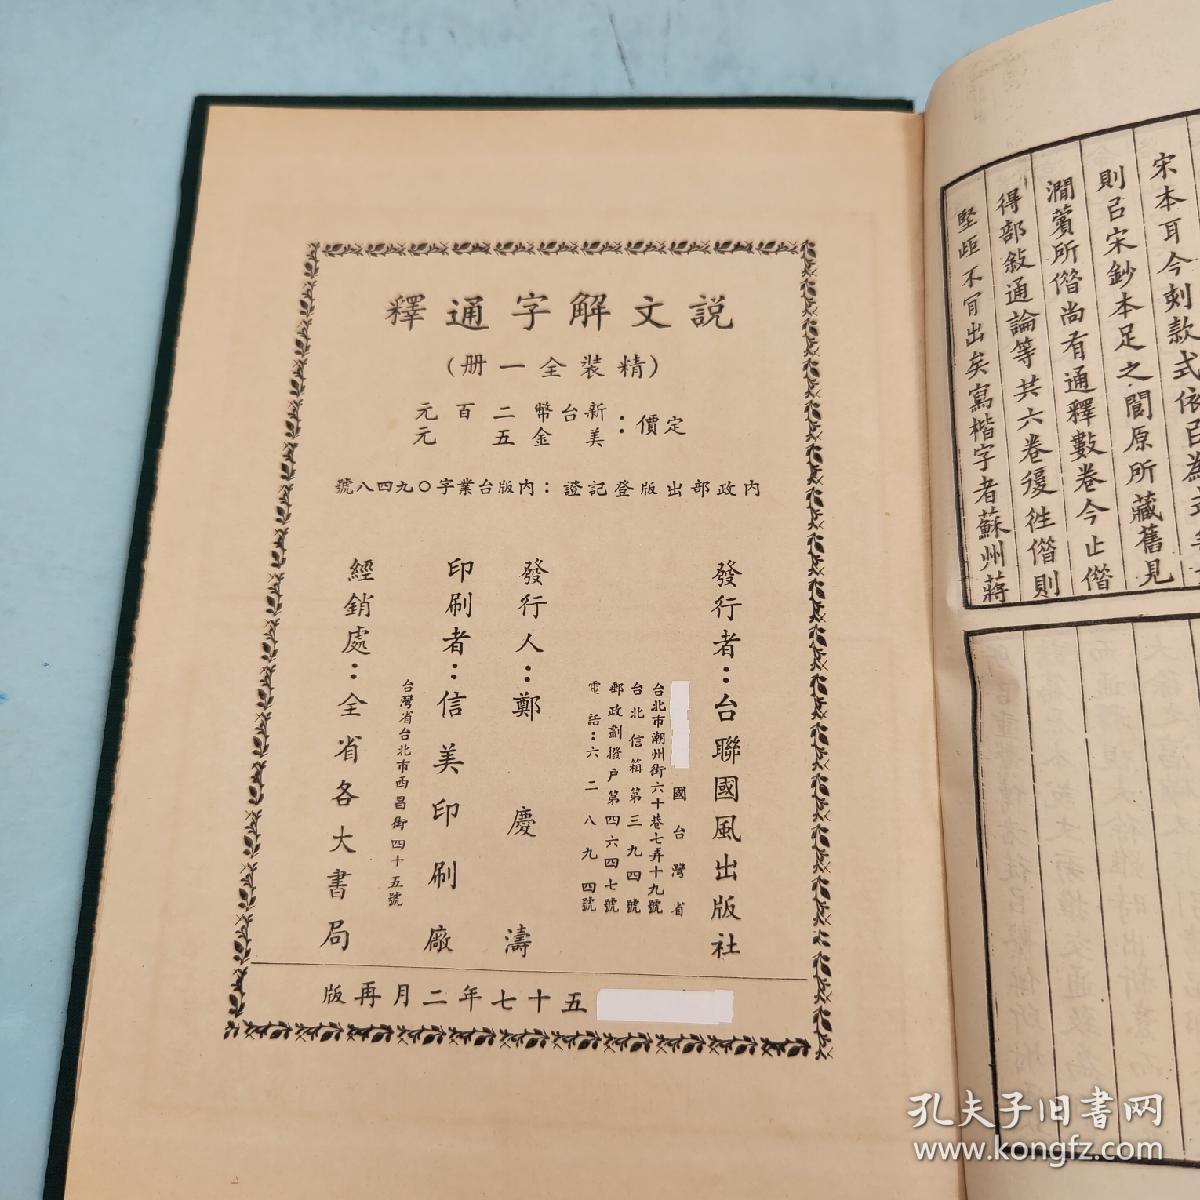 説文解字通釋
(精裝全一册)
定價：新台幣二百元
美金五元
內政部出版登記證：內版台業字〇九四八號
發行者：台聯國風出版社
國台灣省
台北市潮州街六十巷七弄十九號
台北信箱第三九四號
郵政劃撥戶第四六四七號
電話：六二八九四號
發行人：鄭慶濤
印刷者：信美印刷廠
台灣省台北市西昌街四十五號
經銷處：全省各大書局
五十七年二月再版
宋本耳今刻款式依
則㠯宋鈔本足之閒原所藏舊見
澗薲所偕尚有通釋數卷今止偕
得部敍通論等共六卷復徃偕則
堅歫不冐出矣寫楷字者蘇州蔣
孔夫子旧书网
www.kongfz.com